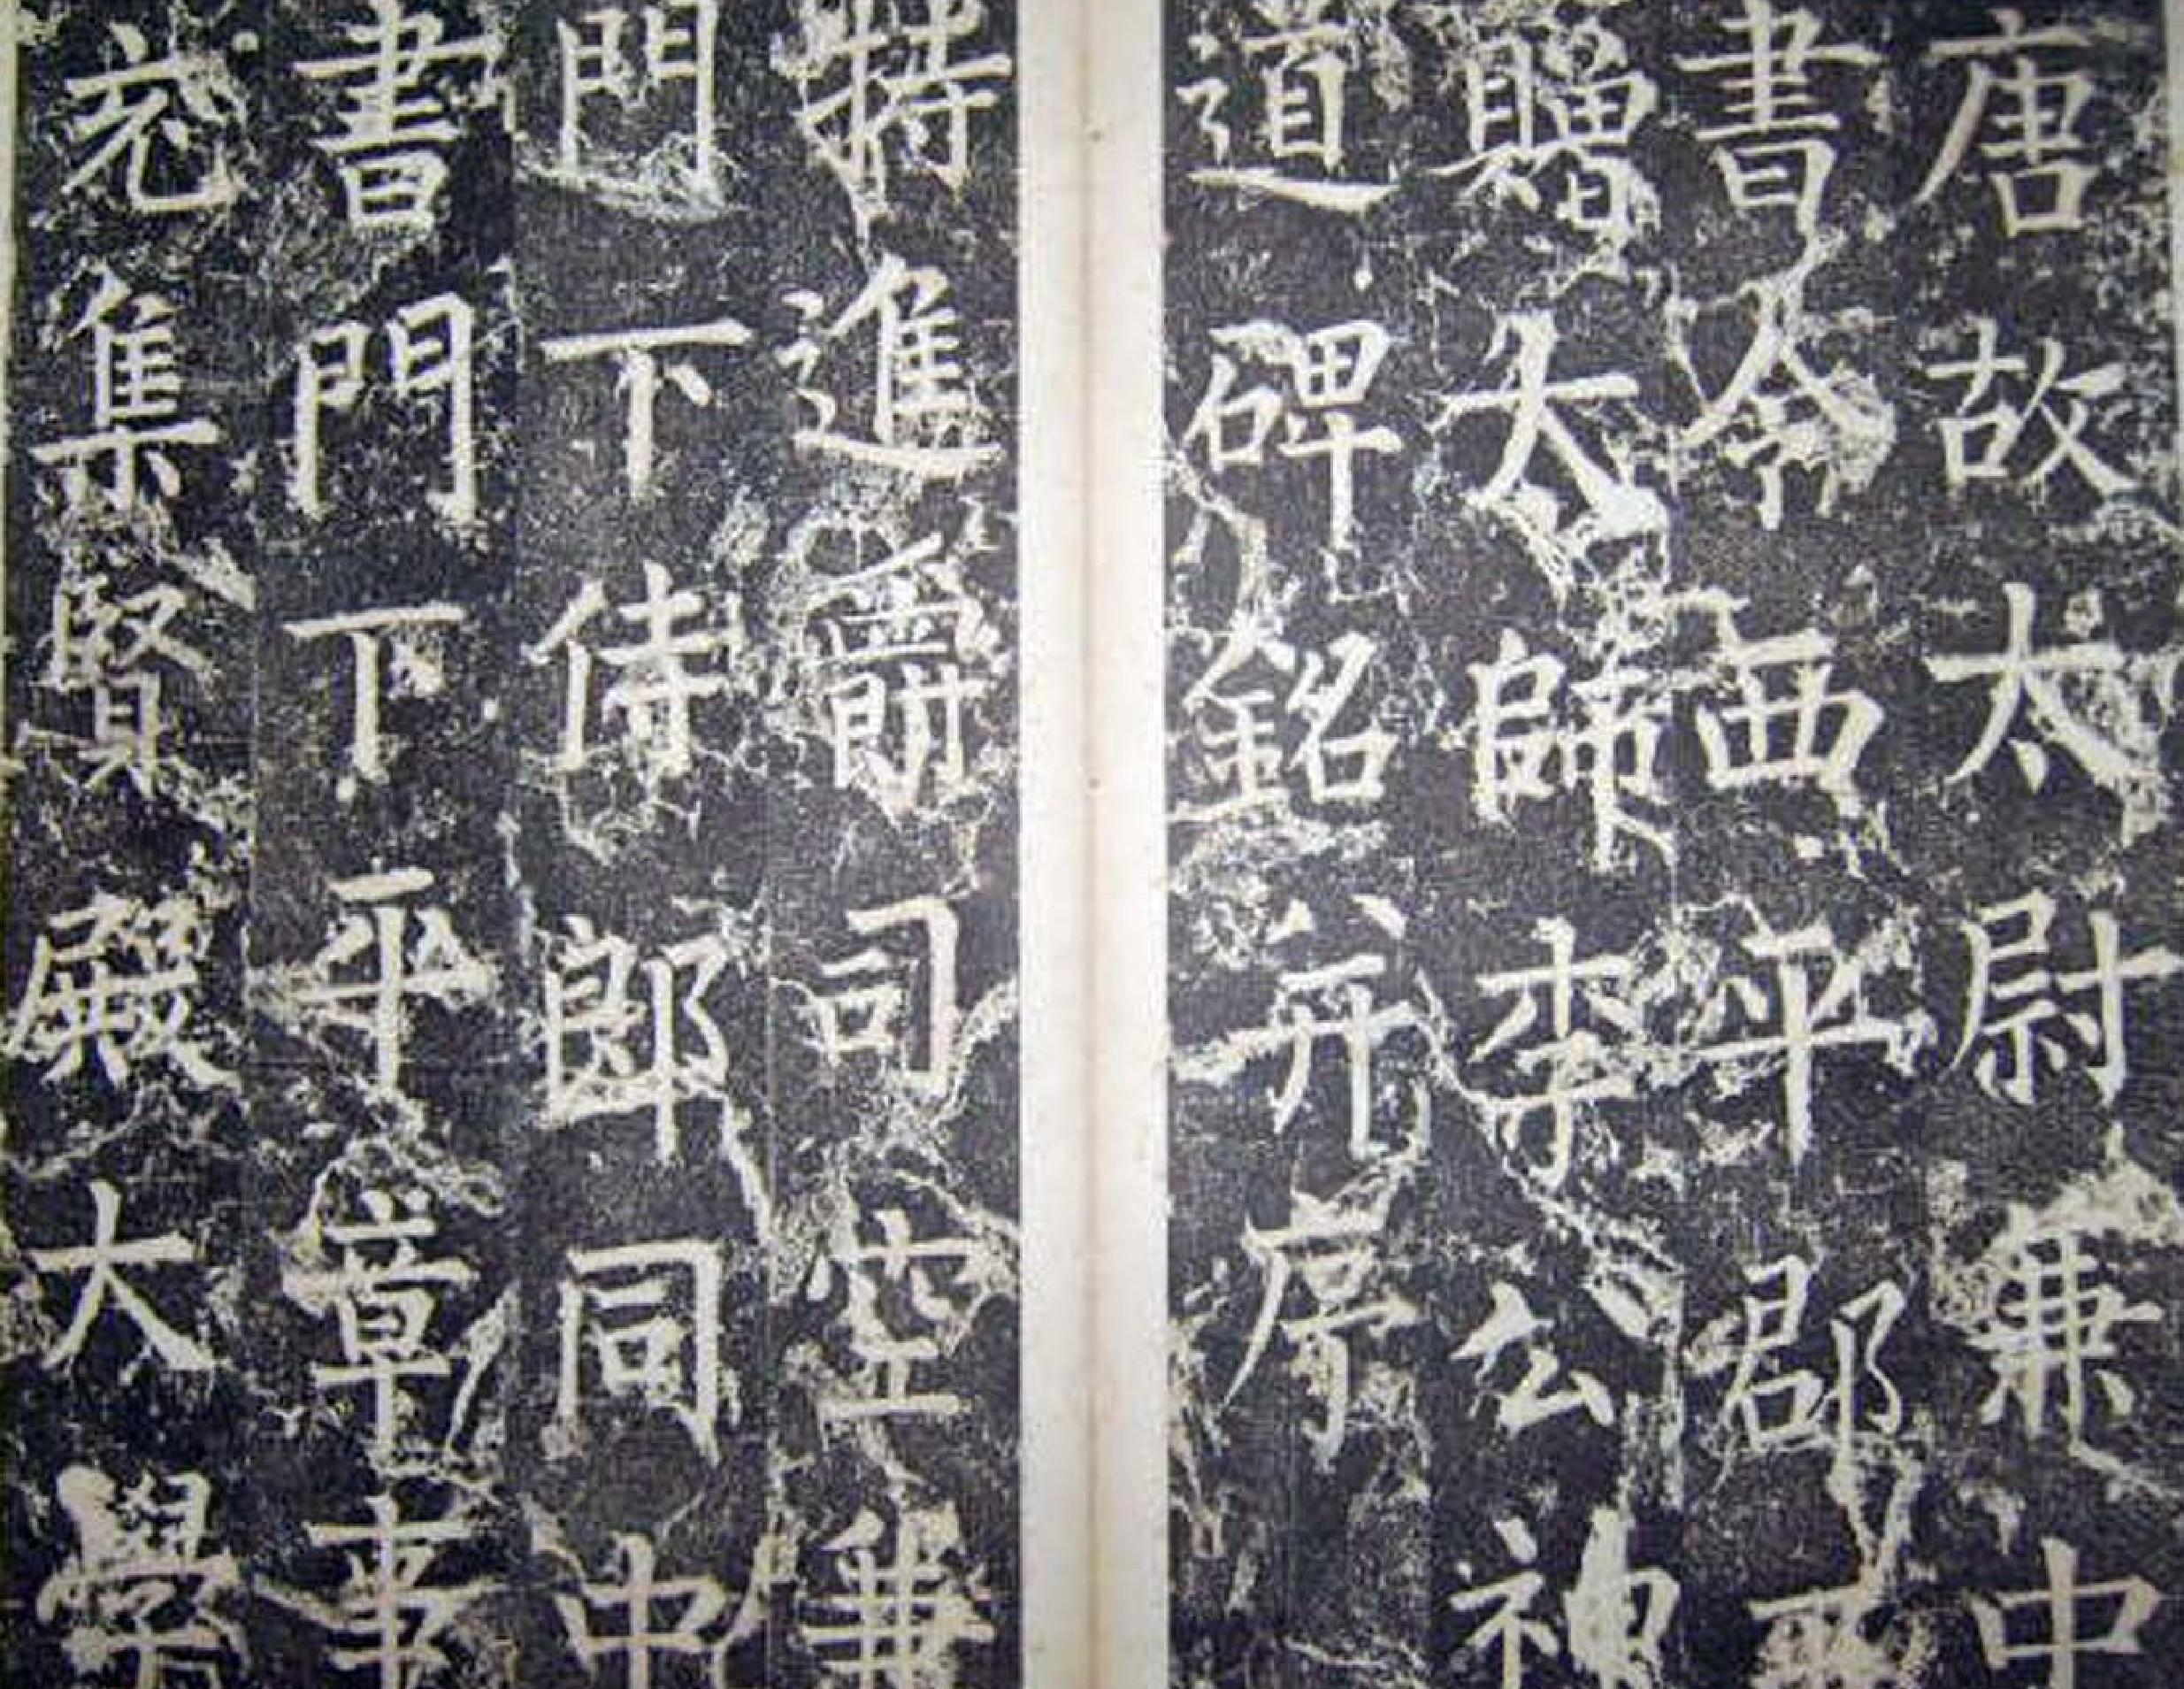 唐故太尉兼中
書令西平郡王
贈太師李公神
道碑銘并序
特進爵司空兼
門下侍郎同中
書門下平章事
充集賢殿大學